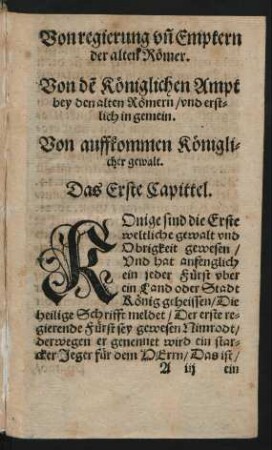 Von regierung vñ Emptern
der alten Römer.
Von dē Königlichen Ampt
bey den alten Römern/vnd erst-
lich in gemein.
Von auffkommen Königli-
cher gewalt.
Das Erste Capittel.
KOnige sind die Erste
weltliche gewalt vnd
Obrigkeit gewesen/
Vnd hat anfenglich
ein jeder Fürst vber
ein Land oder Stadt
König geheissen/Die
heilige Schrifft meldet/Der erste re-
gierende Fürst sey gewesen Nimrodt/
derwegen er genennet wird ein star-
cker Jeger für dem HErrn/Das ist/
A iij ein